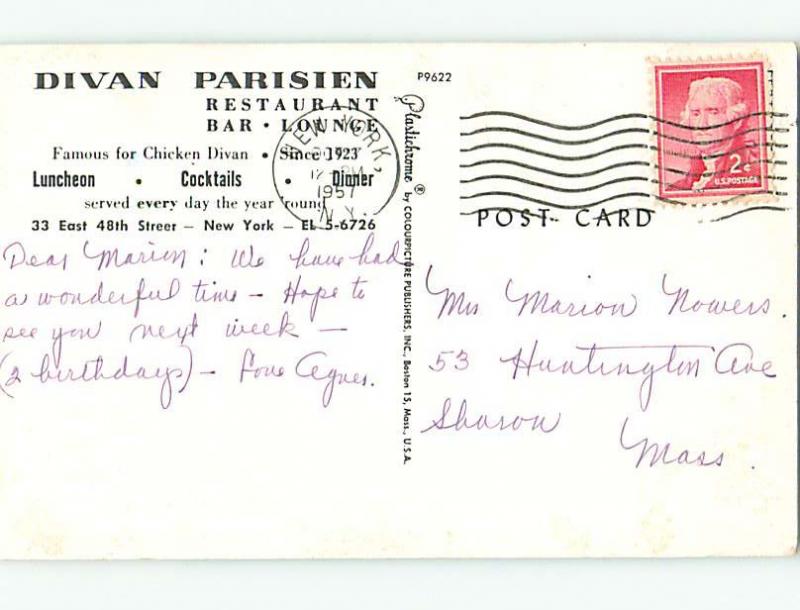 DIVAN PARISIEN
RESTAURANT
BAR • LOUNGE
Famous for Chicken Divan • Since 1923
Luncheon • Cocktails • Dinner
served every day the year 'round
33 East 48th Street — New York — EL 5-6726
Dear Marion: We have had
a wonderful time – Hope to
see you next week –
(2 birthdays) – Love Agnes.
P9622
Plastichrome ® by COLOURPICTURE PUBLISHERS, INC., Boston 15, Mass., U.S.A.
NEW YORK,
PM
1957
N.Y.
2¢
U.S. POSTAGE
POST CARD
Mrs Marion Nowers.
53 Huntington Ave
Sharon
Mass.